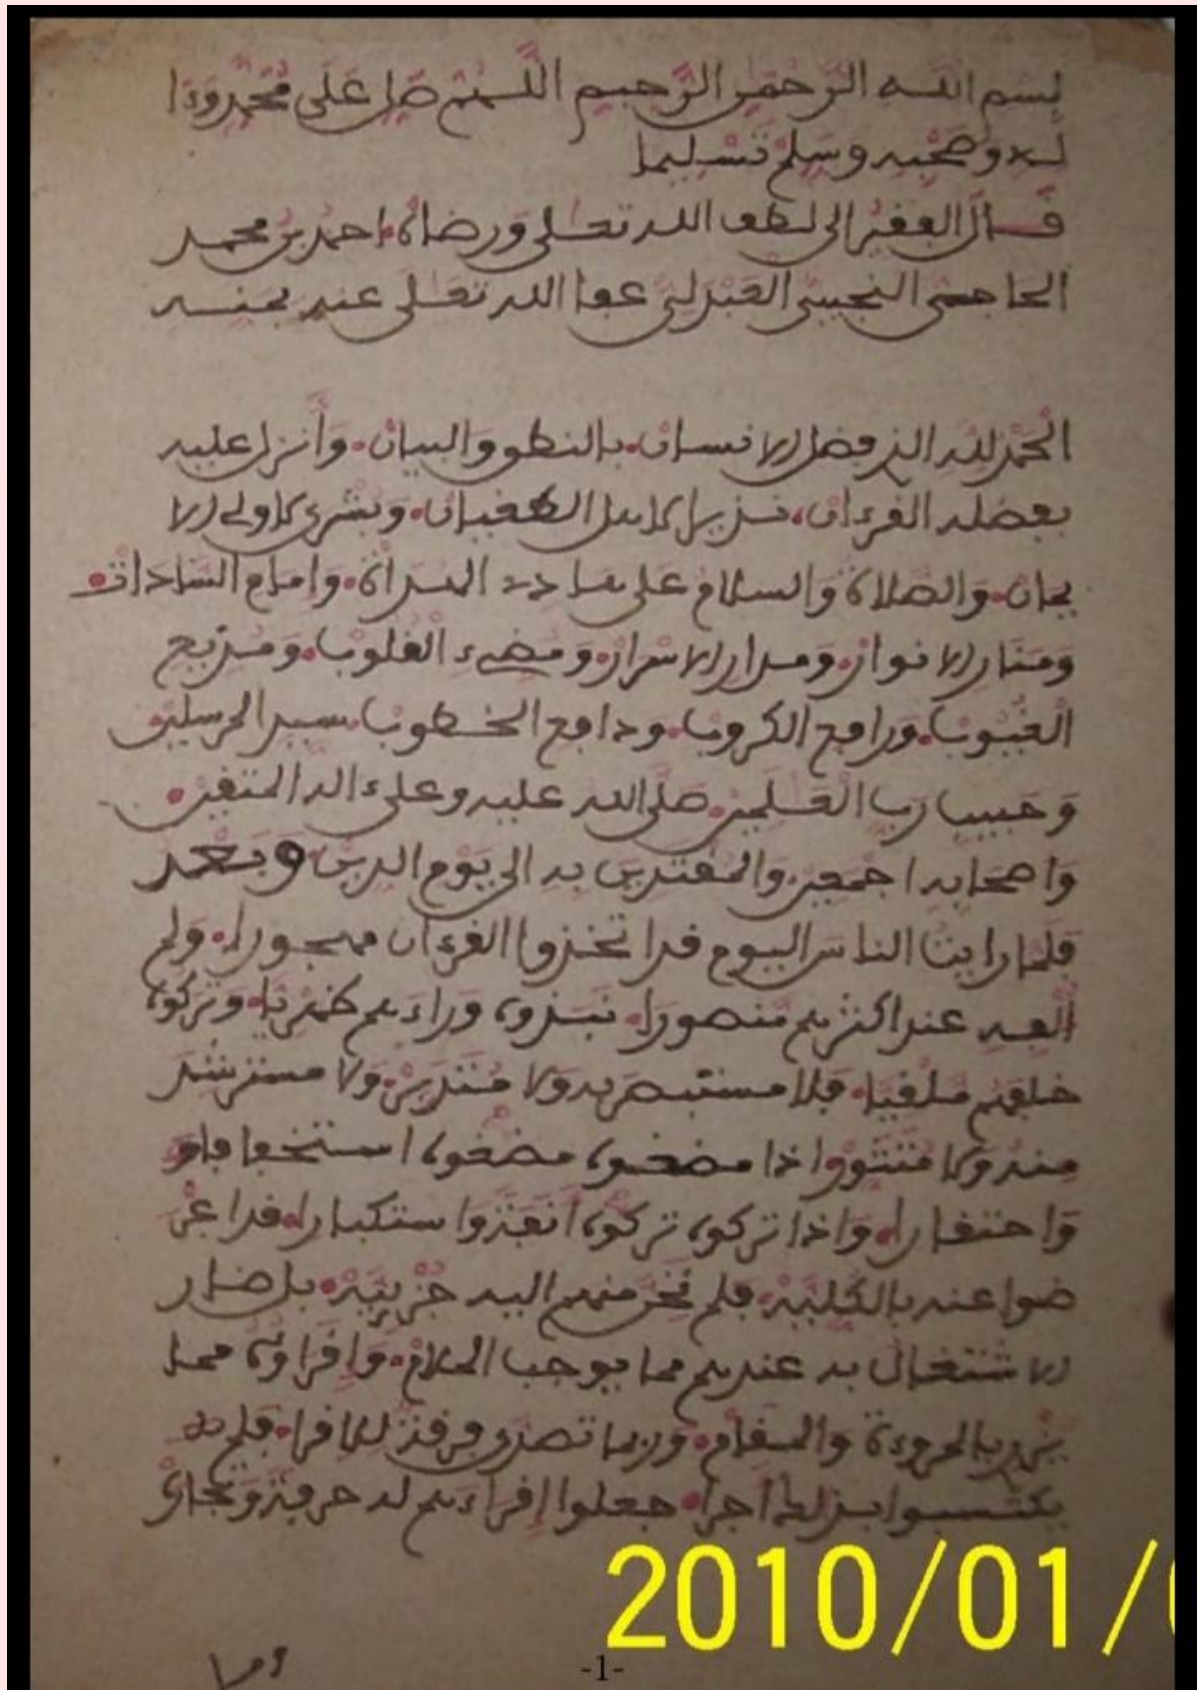 بسم الله الرحمن الرحيم اللهم صل على محمد وءا
له وصحبه وسلم تسليما
قال الفقير الى لطف الله تعلى ورضاه احمد بن محمد
الحاجي عفا الله تعلى عنه بمنه
الحمد لله الذي فضل الانسان بالنطق والبيان وأنزل عليه
بفضله الفرءان نذيرا لاهل الطغيان وبشرى لاولى الا
يمان والصلاة والسلام على السراة وامام السادات
ومنار الانوار ومدار الاسرار ومضيء القلوب ومزيح
الغيوب ورافع الكروب ودافع الخطوب سيد المرسلين
وحبيب رب العلمين صلى الله عليه وعلى ءاله المتقين
واصحابه اجمعين والمقتدين به الى يوم الدين وبعد
فلما رايت الناس اليوم قد اتخذوا القرءان مهجورا ولم
ألفه عند اكثرهم منصورا نبذوه وراءهم ظهريا وتركوه
خلفهم ملقيا فلا مستبصر به ولا متدبر ولا مسترشد
منه ولا اذا مضغوه مضغوه استخفافا و
واحتقارا واذا تركوه تركوه أنفة واستكبارا قد اعر
ضوا عنه بالكلية فلم منهم اليه جزيية بل صار
الاشتغال به عندهم مما يوجب الملام وإقراؤه مما
يزري بالمروءة والمقام وربما تصدى فرقة للاقرا فلم
يكتسبوا بذلك أجرا جعلوا إقراءهم له حرفة وتجار
وما
-1-
2010/01/